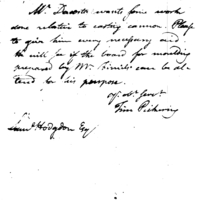 Mr Dacosta wants some work
done relative to casting cannon. Please
to give him every necessary and
he will see if the board for moulding
prepared by Mr. can be al-
tered for his purpose.
Yr. Ob. Servt.
Tim Pickering
Saml. Hodgdon Esq